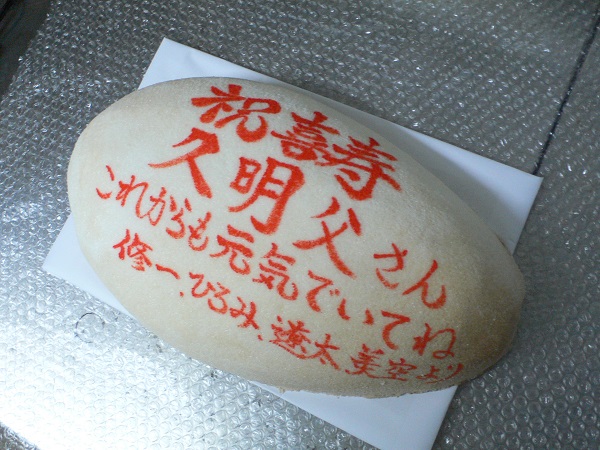 祝喜寿
久明父さん
これからも元気でいてね
修一、ひろみ、蓮太、美空より